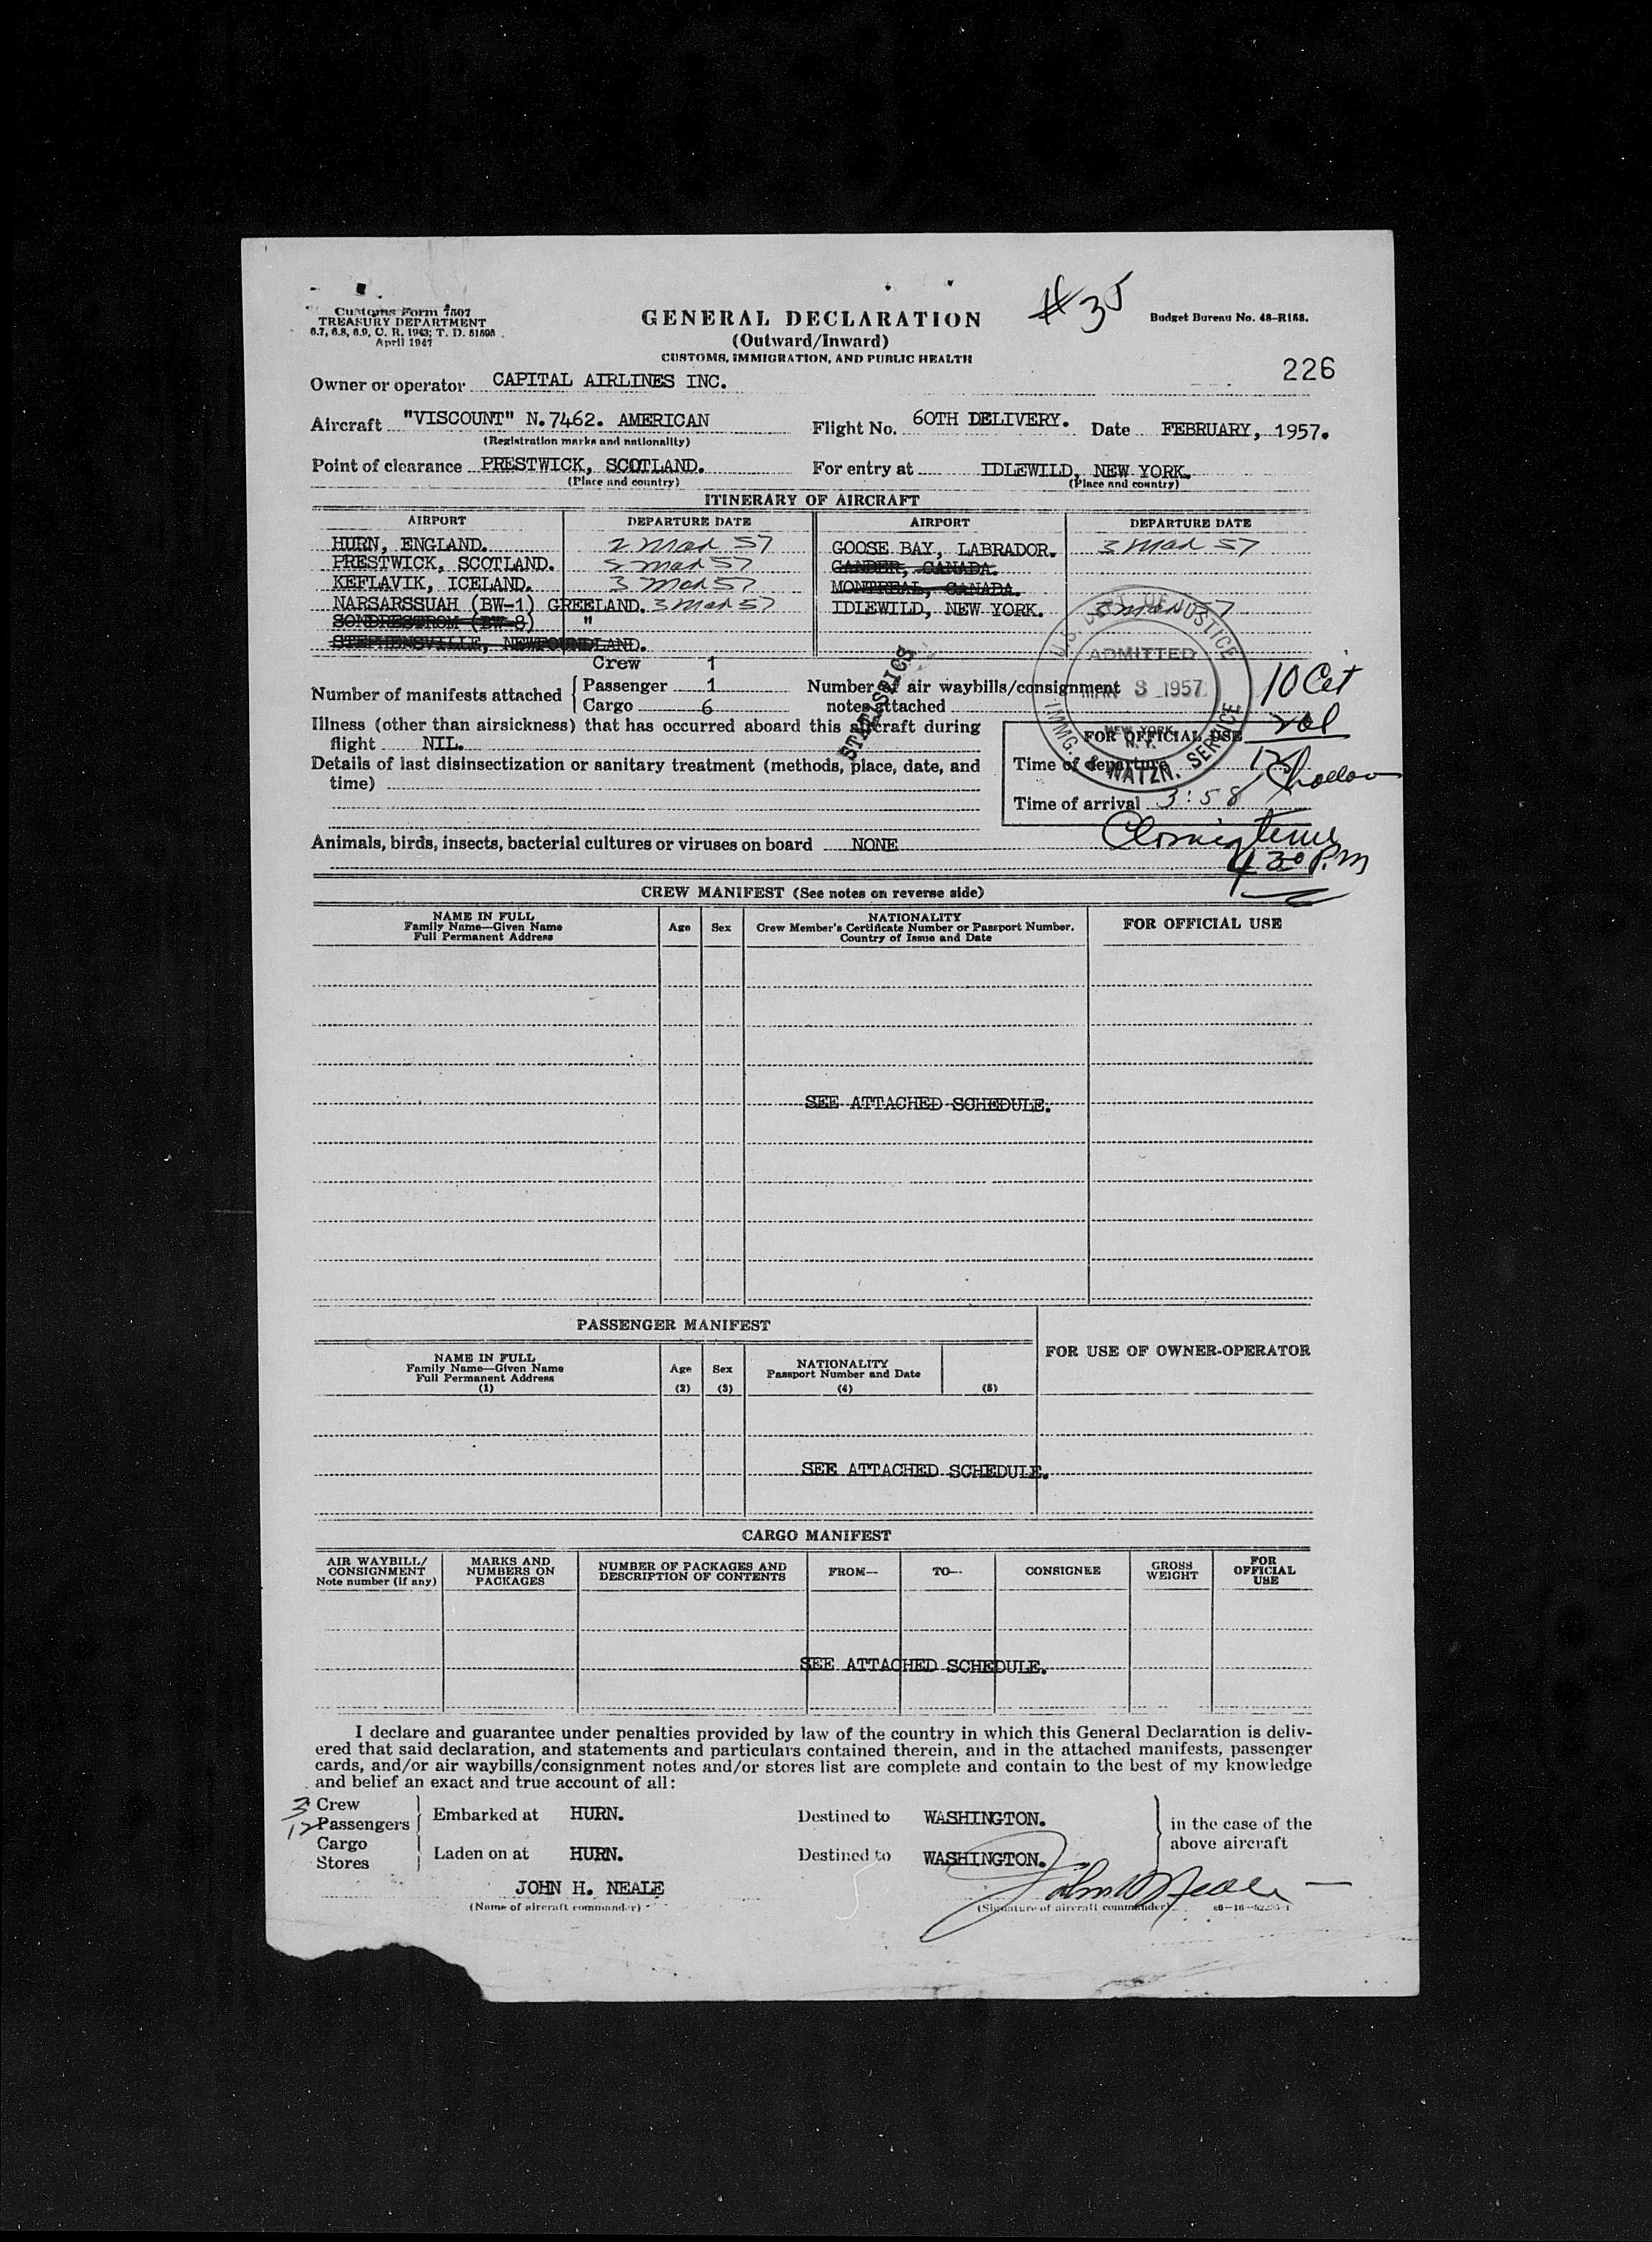 Customs Form 7507
TREASURY DEPARTMENT
6.7, 6.8, 6.9, C. R. 1943; T. D. 51595
April 1947
GENERAL DECLARATION
(Outward/Inward)
CUSTOMS, IMMIGRATION, AND PUBLIC HEALTH
#35
Budget Bureau No. 48-R158.
226
Owner or operator CAPITAL AIRLINES INC.
Aircraft "VISCOUNT" N.7462. AMERICAN Flight No. 60TH DELIVERY. Date FEBRUARY, 1957.
(Registration marks and nationality)
Point of clearance PRESTWICK, SCOTLAND. For entry at IDLEWILD, NEW YORK.
(Place and country) (Place and country)
ITINERARY OF AIRCRAFT
AIRPORT DEPARTURE DATE AIRPORT DEPARTURE DATE
HURN, ENGLAND. 2 Mar 57 GOOSE BAY, LABRADOR. 3 Mar 57
PRESTWICK, SCOTLAND. 2 Mar 57 GANDER, CANADA.
KEFLAVIK, ICELAND. 3 Mar 57 MONTREAL, CANADA.
NARSARSSUAH (BW-1) GREELAND. 3 Mar 57 IDLEWILD, NEW YORK. 3 Mar 57
SONDRESTROM (BW-8) "
STEPHENSVILLE, NEWFOUNDLAND.
U.S. DEPT. OF JUSTICE
ADMITTED
MAR 3 1957
NEW YORK
N. Y.
IMMG. & NATZN. SERVICE
STATISTICS
Number of manifests attached
Crew 1
Passenger 1
Cargo 6
Number of air waybills/consignment
notes attached
10 Cit
Illness (other than airsickness) that has occurred aboard this aircraft during
flight NIL.
Details of last disinsectization or sanitary treatment (methods, place, date, and
time)
FOR OFFICIAL USE
Time of departure
Time of arrival 3:58
Closing time
4 30 P.M
Animals, birds, insects, bacterial cultures or viruses on board NONE
CREW MANIFEST (See notes on reverse side)
NAME IN FULL
Family Name—Given Name
Full Permanent Address
Age
Sex
NATIONALITY
Crew Member's Certificate Number or Passport Number,
Country of Issue and Date
FOR OFFICIAL USE
SEE ATTACHED SCHEDULE.
PASSENGER MANIFEST
NAME IN FULL
Family Name—Given Name
Full Permanent Address
(1)
Age
(2)
Sex
(3)
NATIONALITY
Passport Number and Date
(4)
(5)
FOR USE OF OWNER-OPERATOR
SEE ATTACHED SCHEDULE.
CARGO MANIFEST
AIR WAYBILL/
CONSIGNMENT
Note number (if any)
MARKS AND
NUMBERS ON
PACKAGES
NUMBER OF PACKAGES AND
DESCRIPTION OF CONTENTS
FROM—
TO—
CONSIGNEE
GROSS
WEIGHT
FOR
OFFICIAL
USE
SEE ATTACHED SCHEDULE.
I declare and guarantee under penalties provided by law of the country in which this General Declaration is deliv-
ered that said declaration, and statements and particulars contained therein, and in the attached manifests, passenger
cards, and/or air waybills/consignment notes and/or stores list are complete and contain to the best of my knowledge
and belief an exact and true account of all:
3 Crew
12 Passengers
Embarked at HURN. Destined to WASHINGTON.
Cargo
Stores
Laden on at HURN. Destined to WASHINGTON.
in the case of the
above aircraft
JOHN H. NEALE
(Name of aircraft commander)
John H Neale
(Signature of aircraft commander)